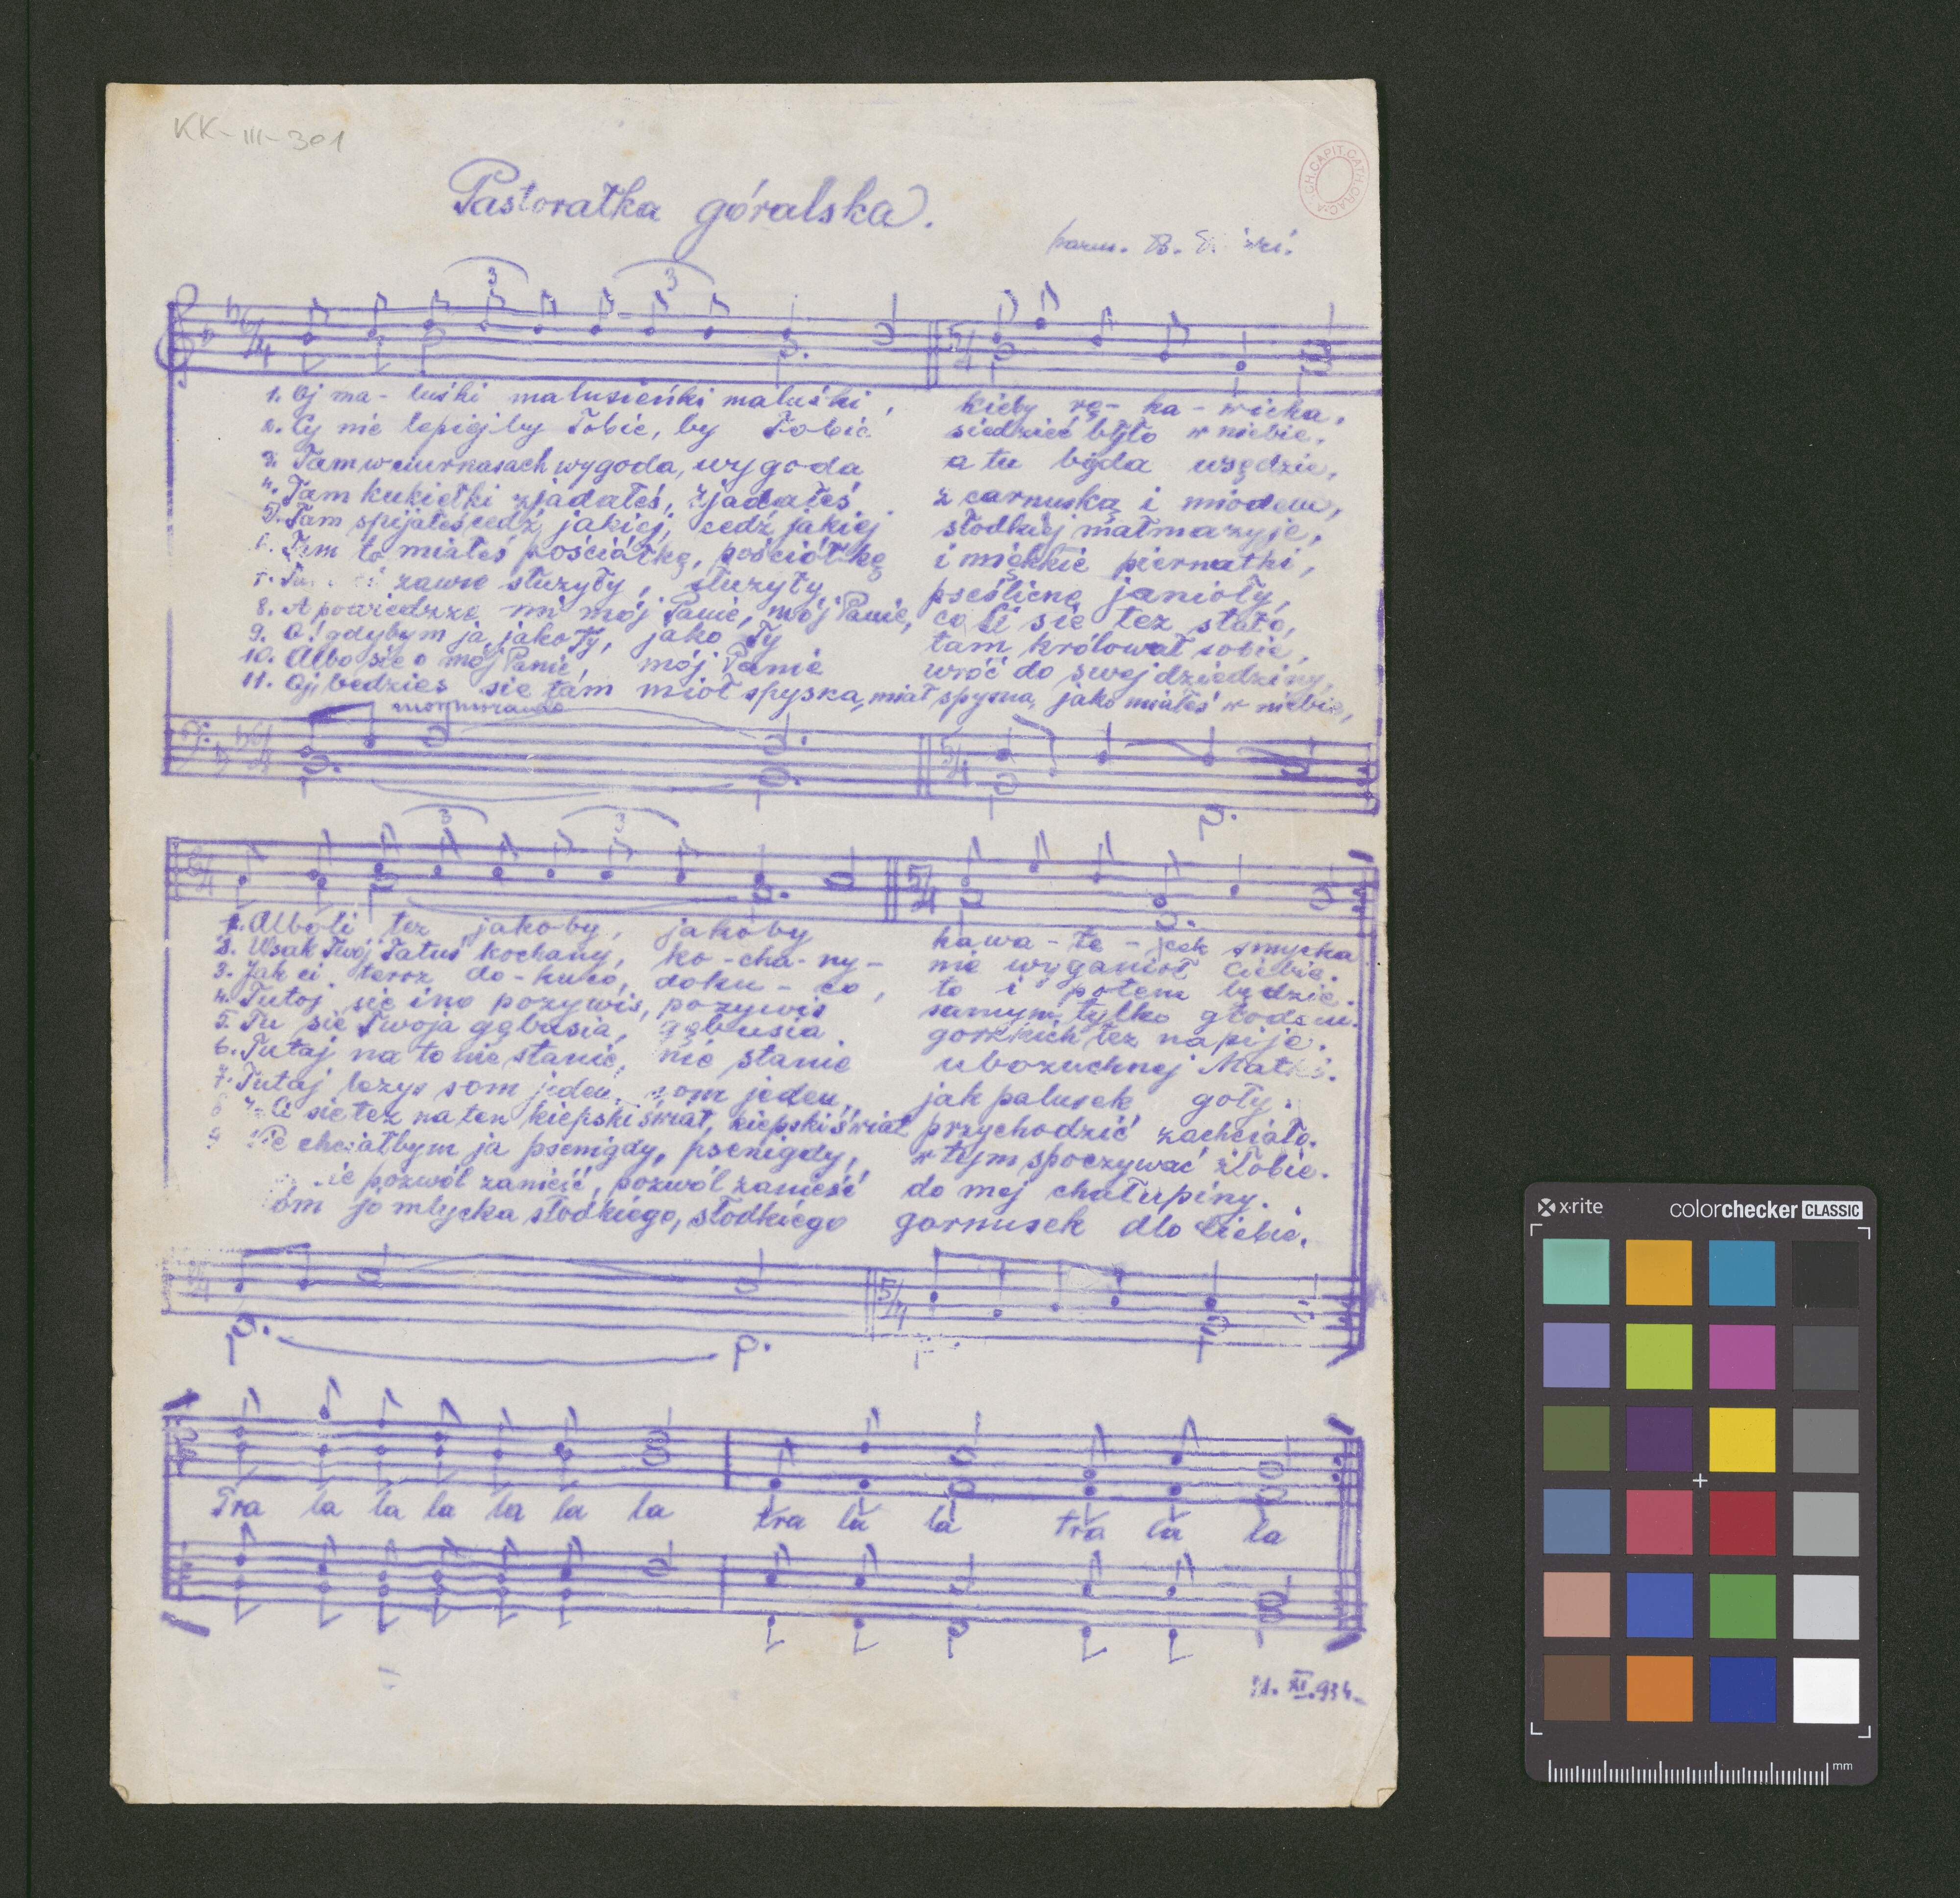 KK-III-301
Pastorałka góralska.
harm. B.
3 3
1. Oj ma-luśki malusieńki maluśki, kieby rę-ka-wicka,
2. Cy nie lepiej by Tobie, by Tobie siedzieć było w niebie,
3. Tam w ciurnasach wygoda, wygoda a tu byda wsędzie,
4. Tam kukiełki zjadałeś, zjadałeś z carnuską i miodem,
5. Tam spijałeś cedź jakiej, cedź jakiej słodkiej małmazyje,
6. Tam to miałeś pościółkę, pościółkę i miękkie piernatki,
7. zawse służyły, służyły pseślicne janioły,
8. A powiedzze mi mój Panie, mój Panie, co Ci sie tez stało,
9. O! gdybym ja jako Ty, jako Ty tam królował sobie,
10. Albo sie o mój Panie, mój Panie wróć do swej dziedziny,
11. Oj, bedzies sie tam miał spyska, miał spysna, jako miałeś w niebie,
mormurando
3 3
1. Alboli tez jakoby, jakoby kawa-te-jcek smycka
2. Wsak Twój Tatuś kochany, ko-cha-ny- nie wyganioł Ciebie.
3. Jak ci teroz do-kuco, doku-co, to i potem będzie.
4. Tutoj sie ino pozywis, pozywis samym tylko głodem.
5. Tu sie Twoja gębusia, gębusia gorzkich łez napije.
6. Tutaj na to nie stanie, nie stanie ubozuchnej Matki.
7. Tutaj lezys som jeden, som jeden, jak palusek goły.
8. Ci sie tez na ten kiepski świat, kiepski świat przychodzić zachciało.
9. chciałbym ja psenigdy, psenigdy, w tym spoczywać żłobie.
pozwól zanieść, pozwól zanieść do mej chałupiny.
jo mlycka słodkiego, słodkiego garnusek dlo Ciebie.
Tra la la la la la la tra la la tra la la
XI.934.
A·CH·CAPIT·CATH·CRAC·
x·rite colorchecker CLASSIC
mm